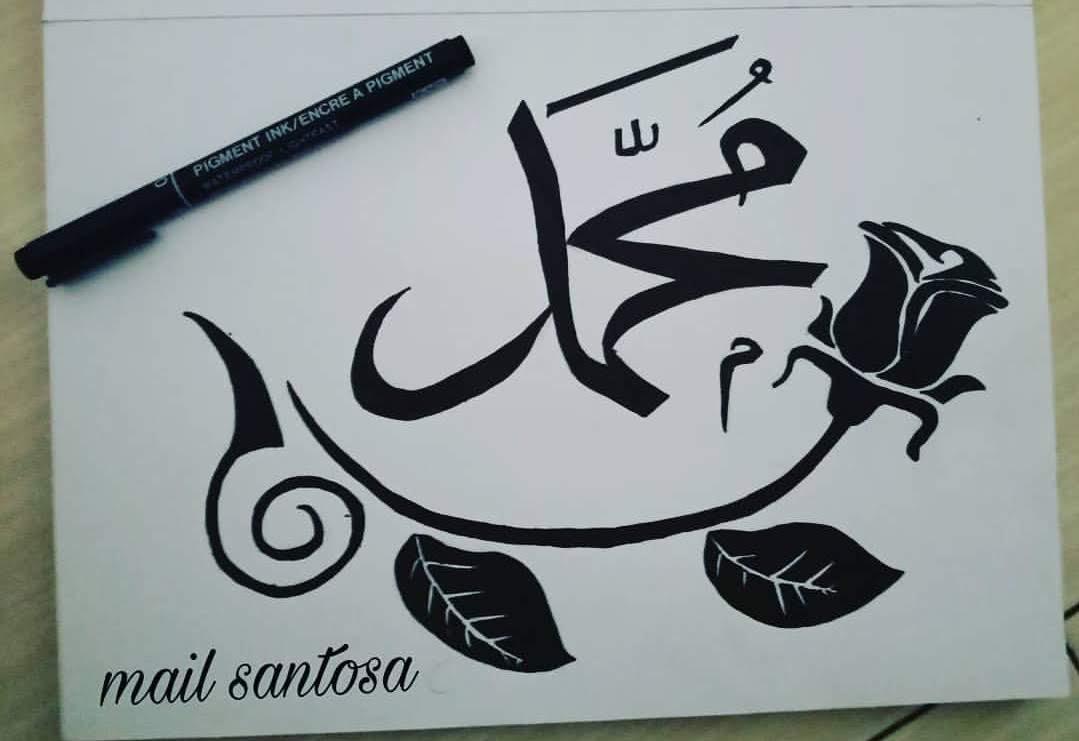 PIGMENT INK/ENCRE A PIGMENT
WATERPROOF · LIGHTFAST
محمّد
mail santosa